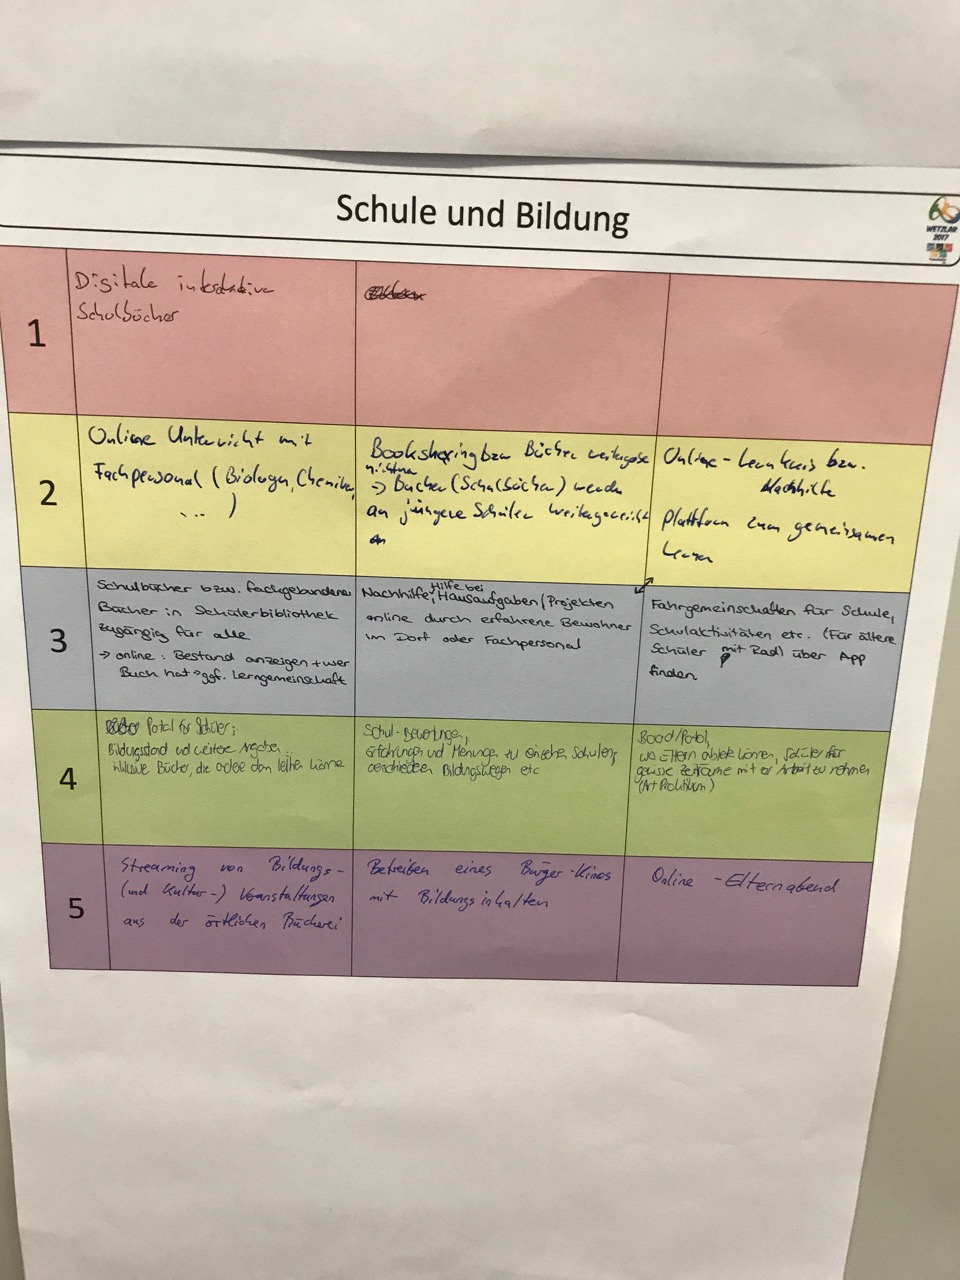 Schule und Bildung
WETZLAR
2017
1
Digitale interaktive
Schulbücher
2
Online Unterricht mit
Fachpersonal (Biologen, Chemiker,
... )
Booksharing bzw Bücher weitergabe
→ Bücher (Schulbücher) werden
an jüngere Schüler weitergereicht
Online-Lernkreis bzw.
Nachhilfe
Plattform zum gemeinsamen
Lernen
3
Schulbücher bzw. fachgebundene
Bücher in Schülerbibliothek
zugängig für alle
→ online: Bestand anzeigen + wer
Buch hat → ggf. Lerngemeinschaft
Hilfe bei
Nachhilfe, Hausaufgaben/Projekten
online durch erfahrene Bewohner
im Dorf oder Fachpersonal
Fahrgemeinschaften für Schule,
Schulaktivitäten etc. (Für ältere
Schüler mit Rad) über App
finden
4
Portal für Schüler:
Bildungsstand und weitere Angaben
inklusive Bücher, die andere dann leihen können
Schul-Bewertungen,
Erfahrungen und Meinungen zu einzelnen Schulen,
verschiedenen Bildungswegen etc
Board/Portal,
wo Eltern anbieten können, Schüler für
gewisse Zeiträume mit zur Arbeit zu nehmen
(Art Praktikum)
5
Streaming von Bildungs-
(und Kultur-) Veranstaltungen
aus der örtlichen Bücherei
Betreiben eines Bürger-Kinos
mit Bildungsinhalten
Online-Elternabend